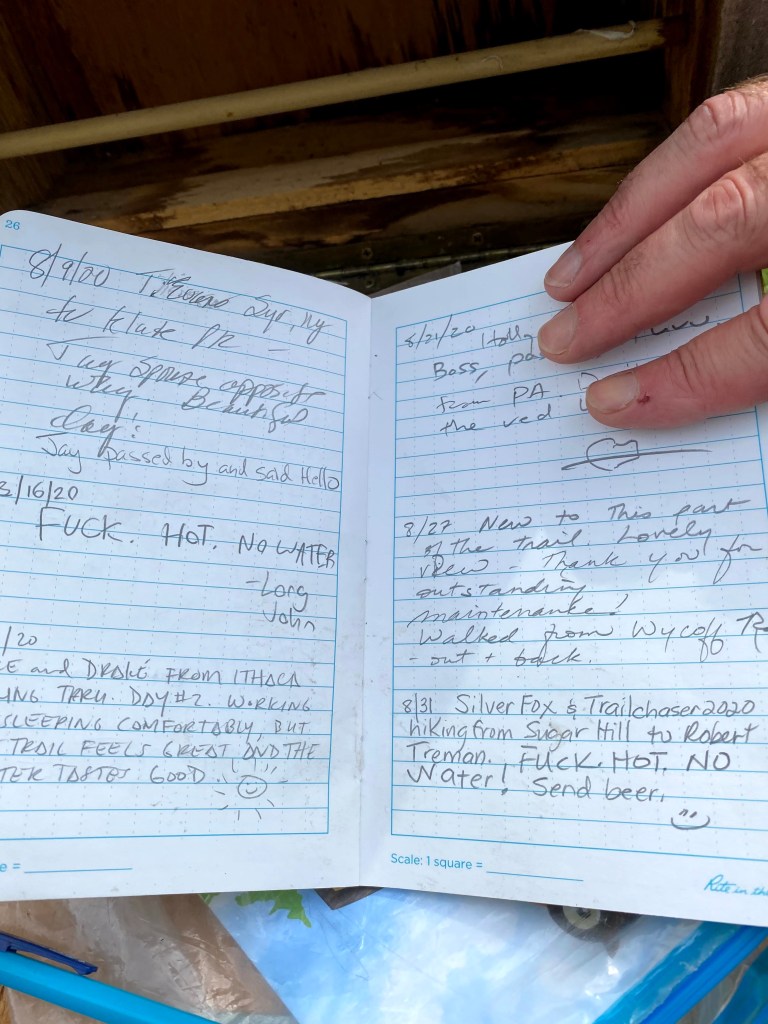 26
8/9/00 Syr, NY
to
Jay Spouse opposite
why. Beautiful
day!
Jay passed by and said Hello
/16/20
FUCK. HOT. NO WATER
-Long
John
/20
and DRAKE FROM ITHACA
THRU. DAY #2. WORKING
SLEEPING COMFORTABLY, BUT
TRAIL FEELS GREAT AND THE
TER TASTES GOOD
e =
8/21/20 Holly
Boss,
from PA.
the red
8/27 New to This part
of the trail Lovely
view - Thank you for
outstanding
maintenance!
Walked from Wycoff R
- out + back.
8/31 Silver Fox & Trailchaser2020
hiking from Sugar Hill to Robert
Treman. FUCK. HOT. NO
Water! Send beer.
Scale: 1 square =
Rite in the